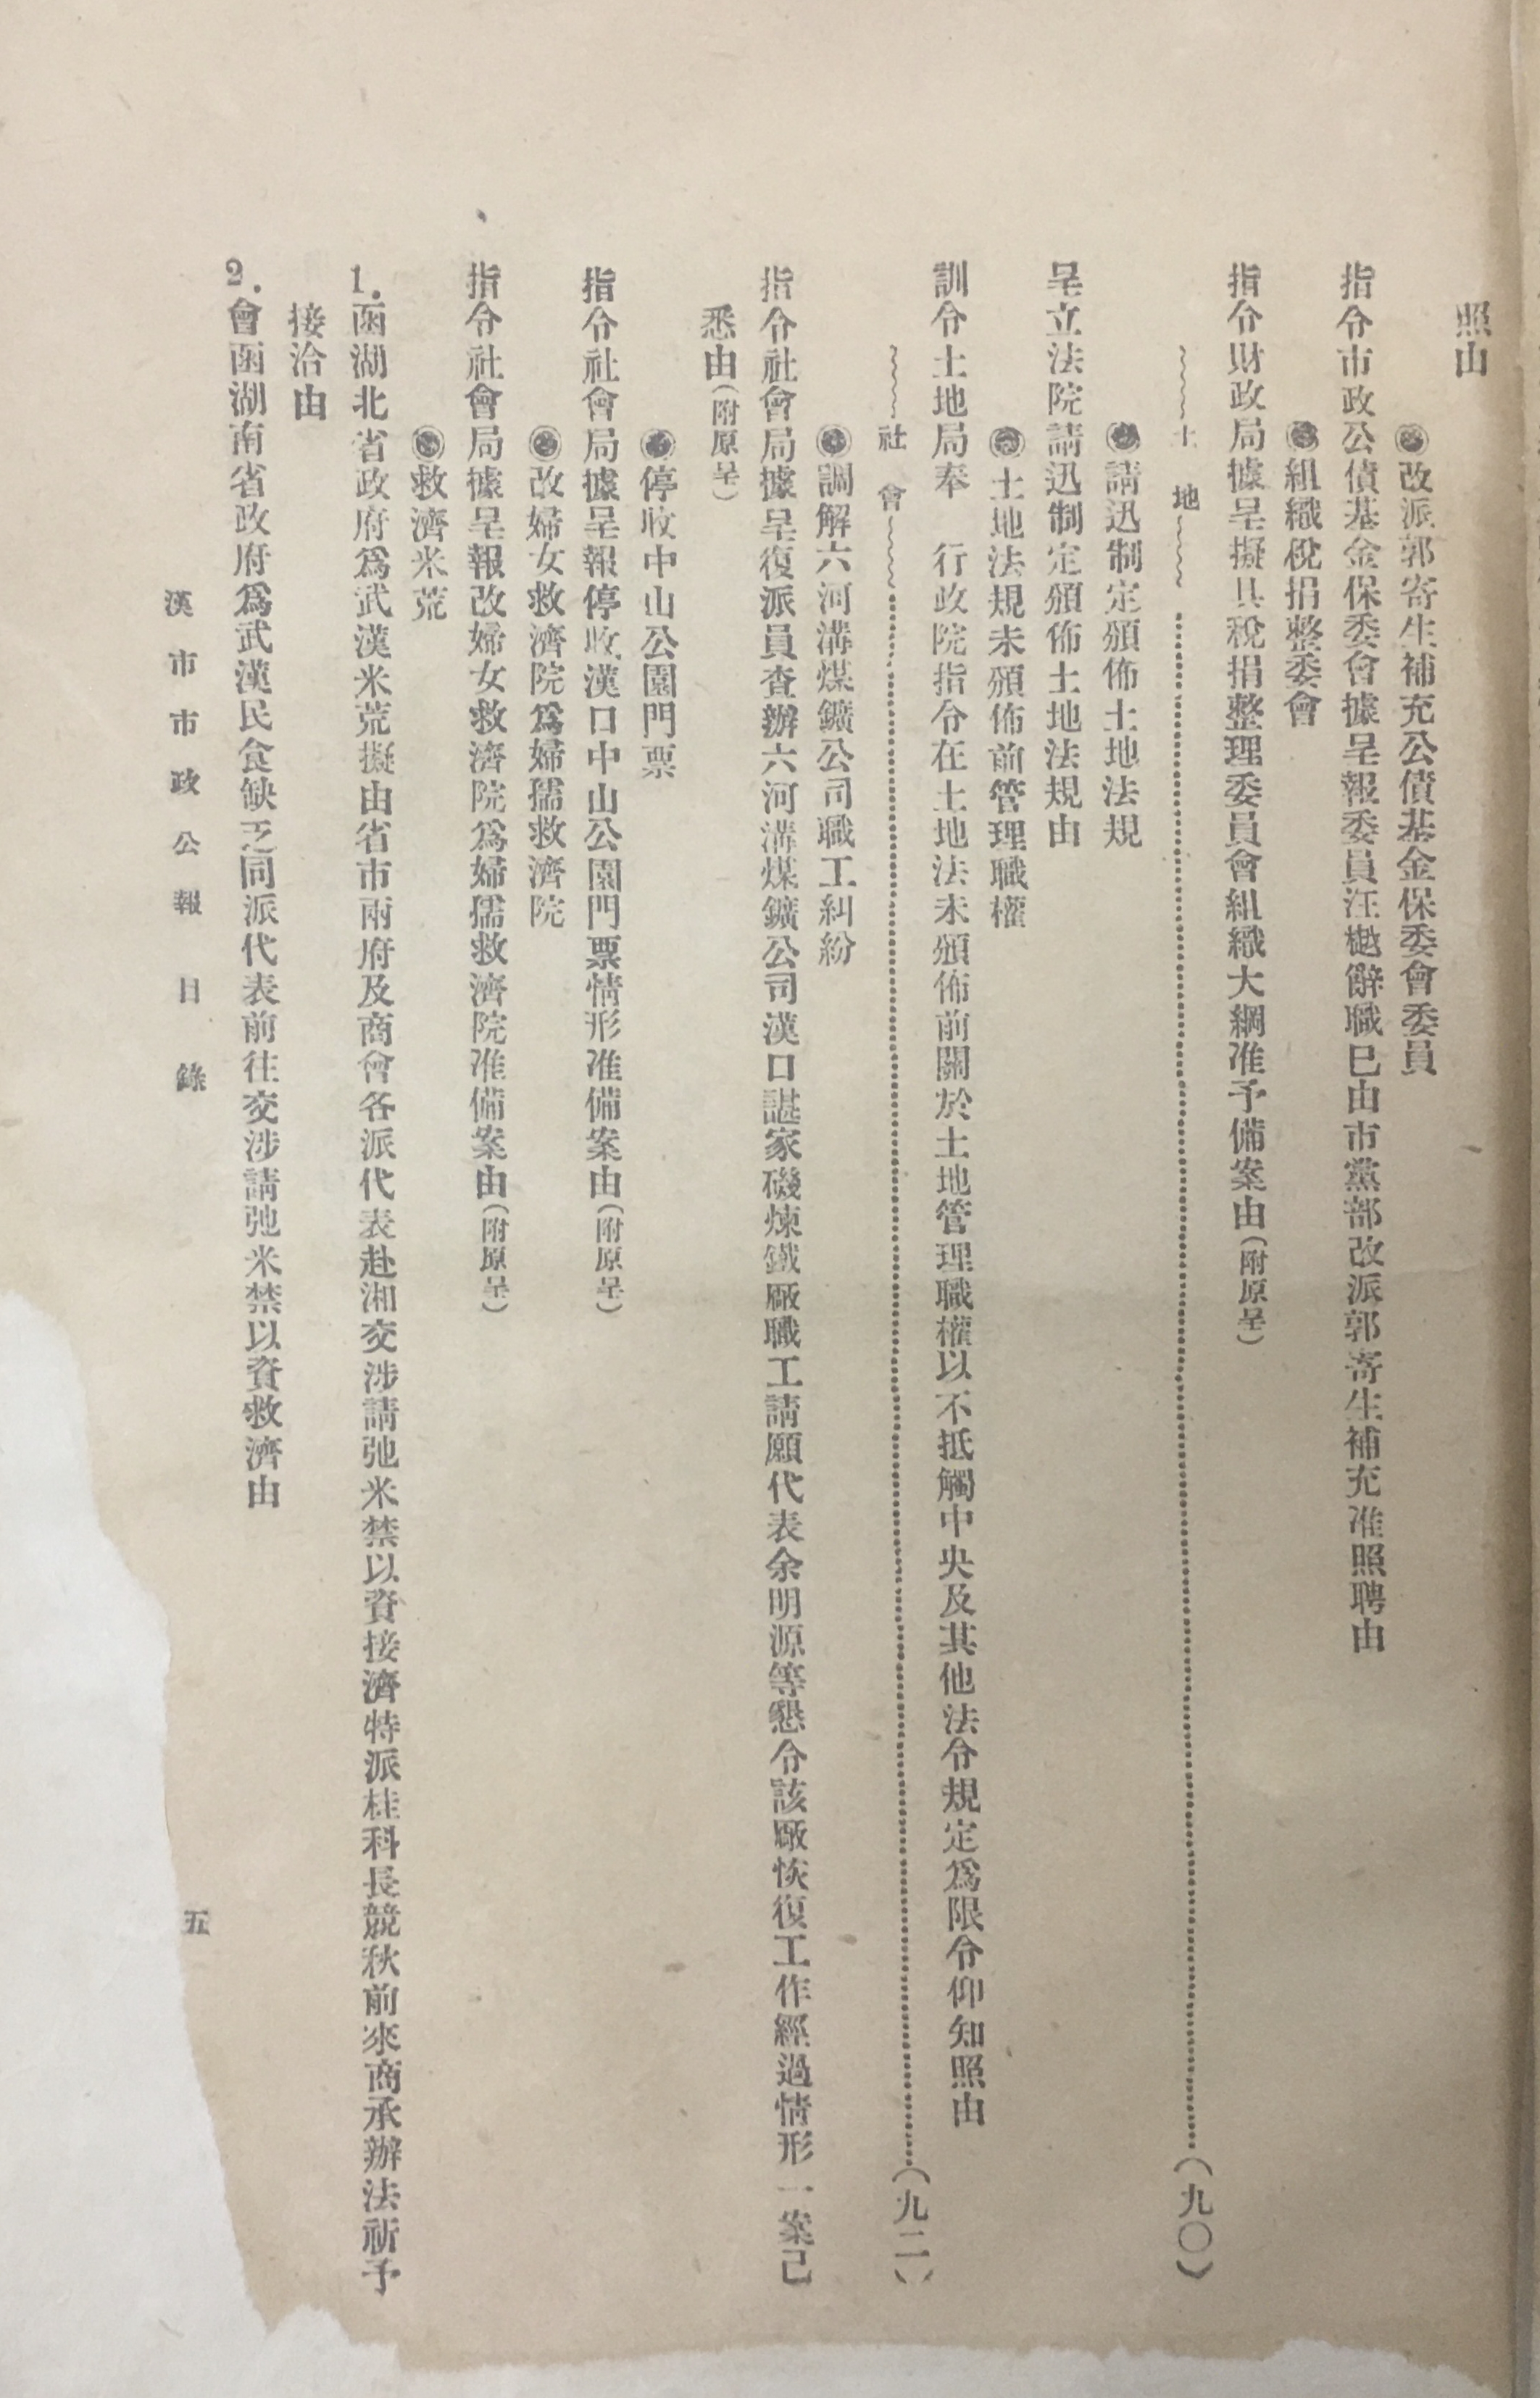 照由
◉改派郭寄生補充公債基金保委會委員
指令市政公債基金保委會據呈報委員汪樾辭職已由市黨部改派郭寄生補充准照聘由
◉組織稅捐整委會
指令財政局據呈擬具稅捐整理委員會組織大綱准予備案由(附原呈)
土地(九〇)
◉請迅制定頒佈土地法規
呈立法院請迅制定頒佈土地法規由
◉土地法規未頒佈前管理職權
訓令土地局奉 行政院指令在土地法未頒佈前關於土地管理職權以不抵觸中央及其他法令規定爲限令仰知照由
社會(九二)
◉調解六河溝煤鑛公司職工糾紛
指令社會局據呈復派員查辦六河溝煤鑛公司漢口諶家磯煉鐵廠職工請願代表余明源等懇令該廠恢復工作經過情形一案已
悉由(附原呈)
◉停收中山公園門票
指令社會局據呈報停收漢口中山公園門票情形准備案由(附原呈)
◉改婦女救濟院爲婦孺救濟院
指令社會局據呈報改婦女救濟院爲婦孺救濟院准備案由(附原呈)
◉救濟米荒
1.函湖北省政府爲武漢米荒擬由省市兩府及商會各派代表赴湘交涉請弛米禁以資接濟特派桂科長競秋前來商承辦法祈予
接洽由
2.會函湖南省政府爲武漢民食缺乏同派代表前往交涉請弛米禁以資救濟由
漢市市政公報 目錄 五